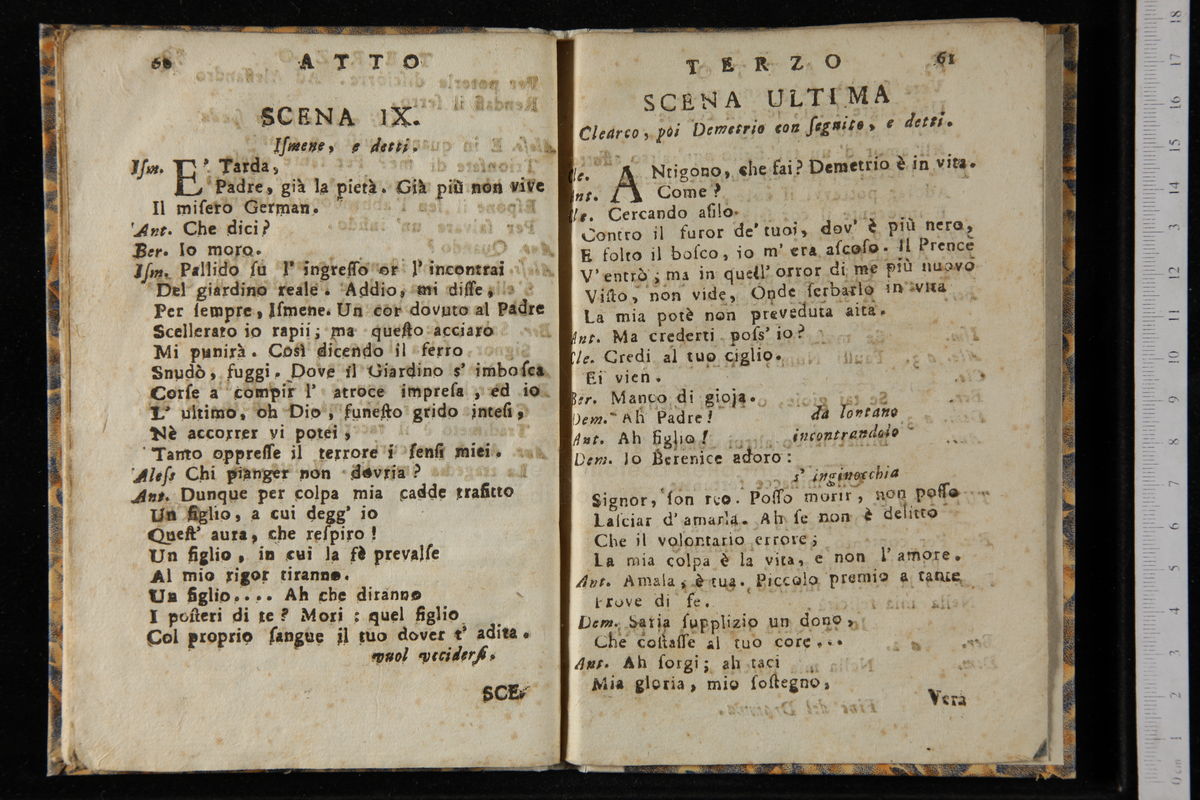 60 ATTO
SCENA IX.
Iſmene, e detti.
Iſm. E' Tarda,
Padre, già la pietà. Già più non vive
Il miſero German.
Ant. Che dici?
Ber. Io moro.
Iſm. Pallido ſu l' ingreſſo or l' incontrai
Del giardino reale. Addio, mi diſſe,
Per ſempre, Iſmene. Un cor dovuto al Padre
Scellerato io rapii; ma queſto acciaro
Mi punirà. Così dicendo il ferro
Snudò, fuggì. Dove il Giardino s' imboſca
Corſe a compir l' atroce impreſa, ed io
L' ultimo, oh Dio, funeſto grido inteſi,
Nè accorrer vi potei,
Tanto oppreſſe il terrore i ſenſi miei.
Aleſs Chi pianger non dovria?
Ant. Dunque per colpa mia cadde trafitto
Un figlio, a cui degg' io
Queſt' aura, che reſpiro!
Un figlio, in cui la fè prevalſe
Al mio rigor tiranno.
Un figlio.... Ah che diranno
I poſteri di te? Mori: quel figlio
Col proprio ſangue il tuo dover t' adita.
vuol ucciderſi.
SCE-
TERZO 61
SCENA ULTIMA
Clearco, poi Demetrio con ſeguito, e detti.
Cle. ANtigono, che fai? Demetrio è in vita.
Ant. Come?
Cle. Cercando aſilo
Contro il furor de' tuoi, dov' è più nero,
E folto il boſco, io m' era aſcoſo. Il Prence
V' entrò; ma in quell' orror di me più nuovo
Viſto, non vide, Onde ſerbarlo in vita
La mia potè non preveduta aita.
Ant. Ma crederti poſs' io?
Cle. Credi al tuo ciglio.
Ei vien.
Ber. Manco di gioja.
Dem. Ah Padre! da lontano
Ant. Ah figlio! incontrandolo
Dem. Io Berenice adoro:
s' inginocchia
Signor, ſon reo. Poſſo morir, non poſſo
Laſciar d' amarla. Ah ſe non è delitto
Che il volontario errore;
La mia colpa è la vita, e non l' amore.
Ant. Amala, è tua. Piccolo premio a tante
Prove di fe.
Dem. Saria ſupplizio un dono,
Che coſtaſſe al tuo core...
Ant. Ah ſorgi; ah taci
Mia gloria, mio ſoſtegno,
Vera